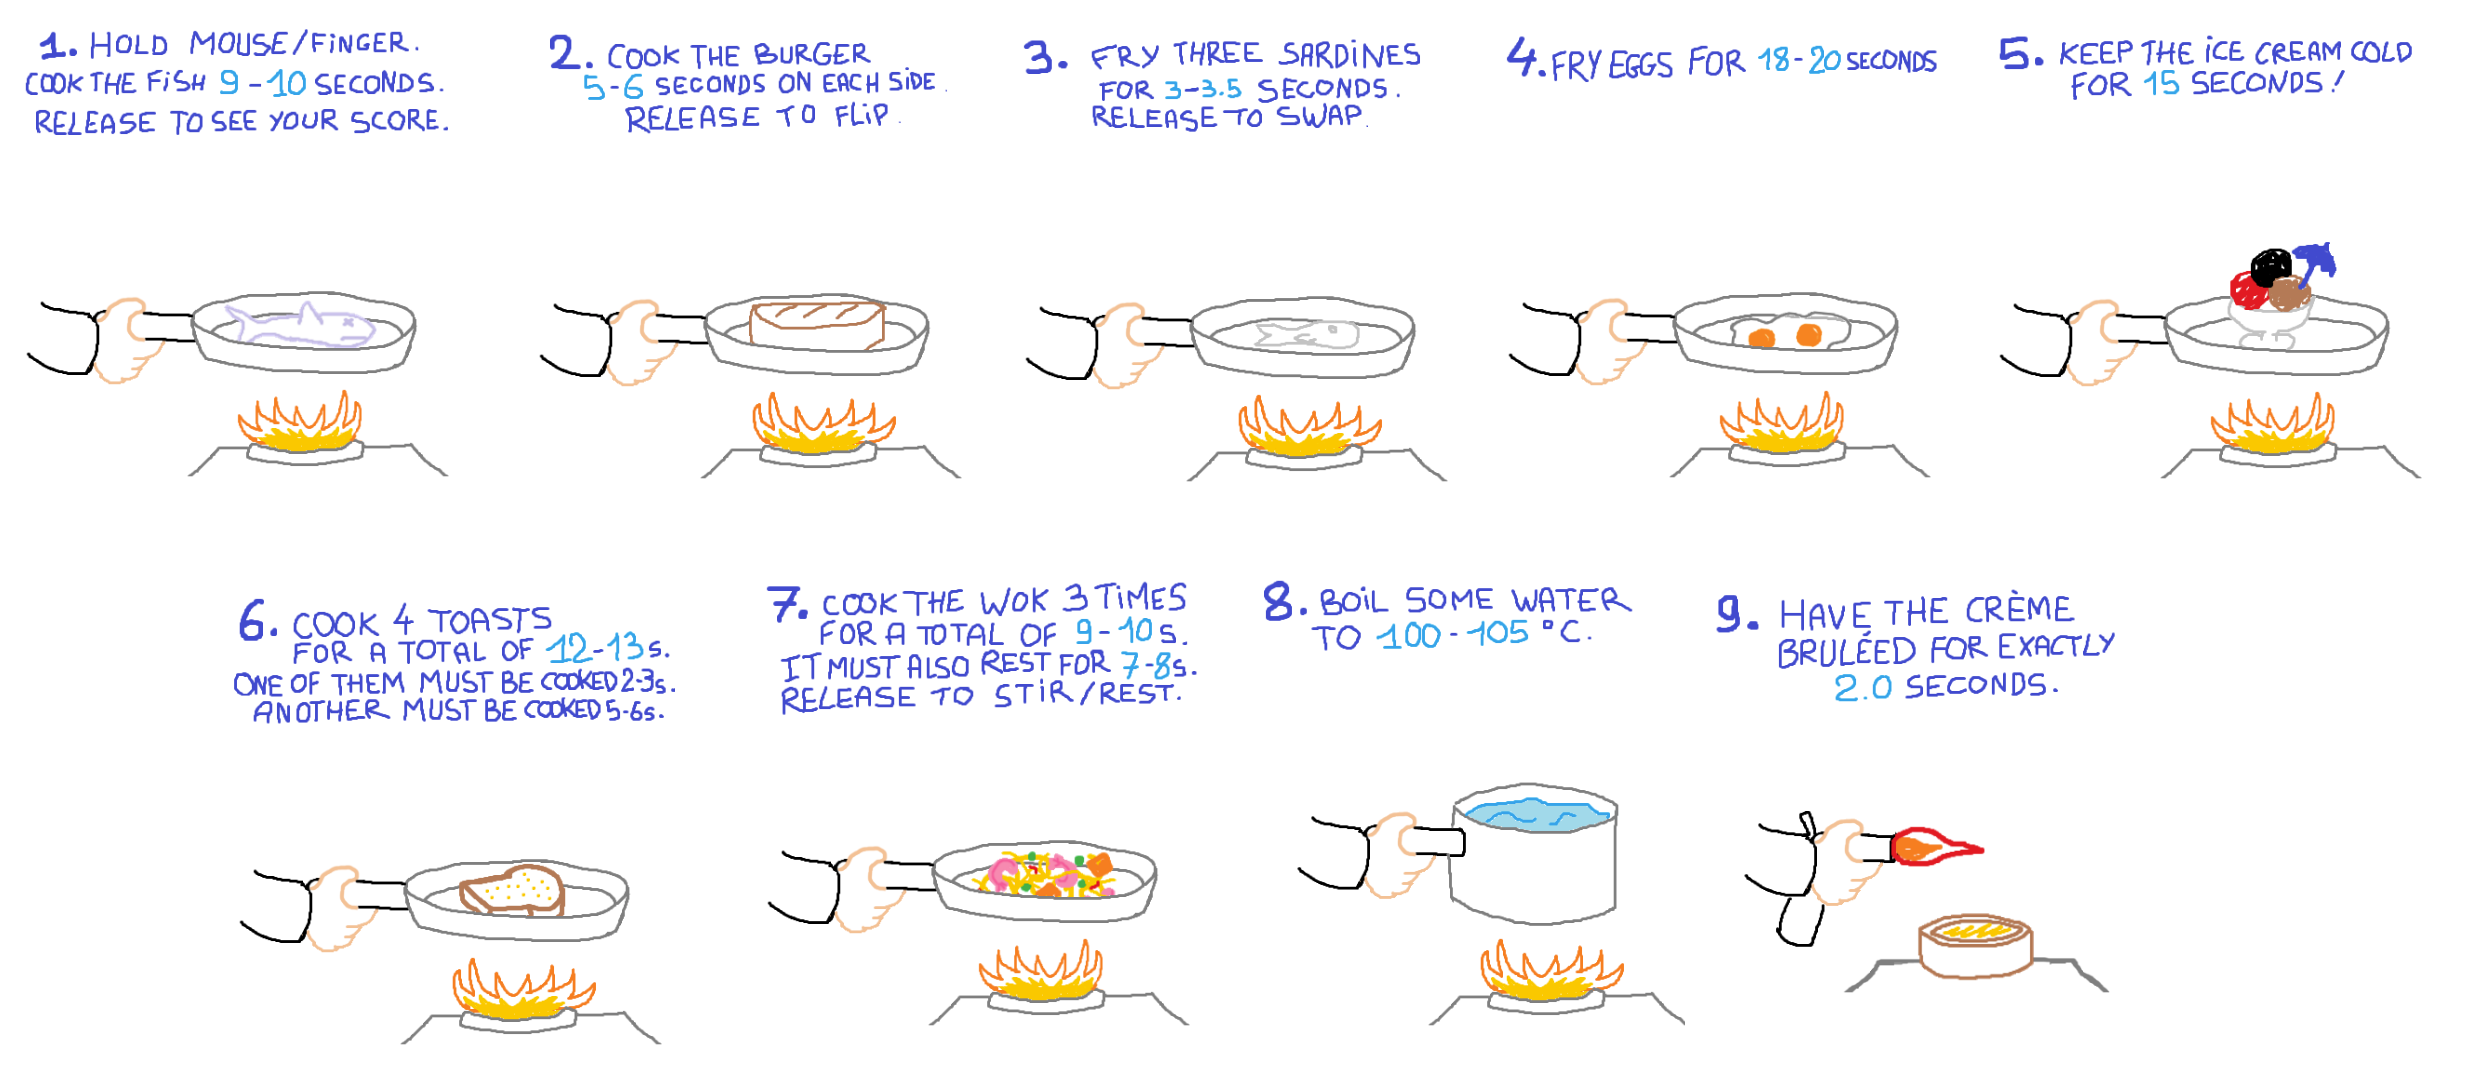 1. HOLD MOUSE/FINGER.
COOK THE FISH 9-10 SECONDS.
RELEASE TO SEE YOUR SCORE.
2. COOK THE BURGER
5-6 SECONDS ON EACH SIDE.
RELEASE TO FLIP.
3. FRY THREE SARDINES
FOR 3-3.5 SECONDS.
RELEASE TO SWAP.
4. FRY EGGS FOR 18-20 SECONDS
5. KEEP THE ICE CREAM COLD
FOR 15 SECONDS!
6. COOK 4 TOASTS
FOR A TOTAL OF 12-13s.
ONE OF THEM MUST BE COOKED 2-3s.
ANOTHER MUST BE COOKED 5-6s.
7. COOK THE WOK 3 TIMES
FOR A TOTAL OF 9-10s.
IT MUST ALSO REST FOR 7-8s.
RELEASE TO STIR/REST.
8. BOIL SOME WATER
TO 100-105 °C.
9. HAVE THE CRÈME
BRULÉED FOR EXACTLY
2.0 SECONDS.